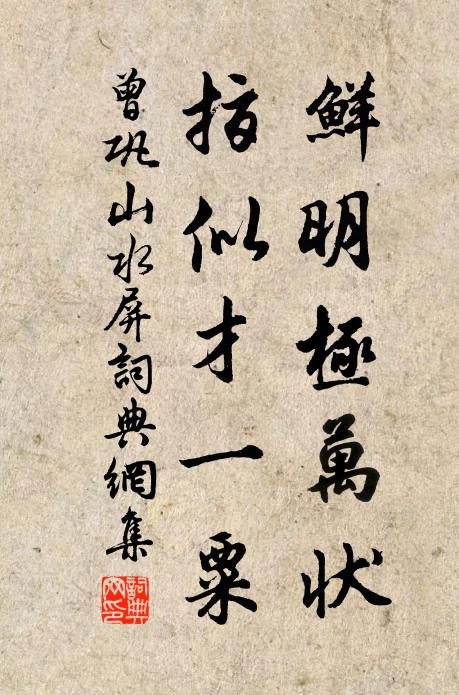 鮮明極萬狀
指似才一粟
曾巩山水屏詞典網集
詞典網印